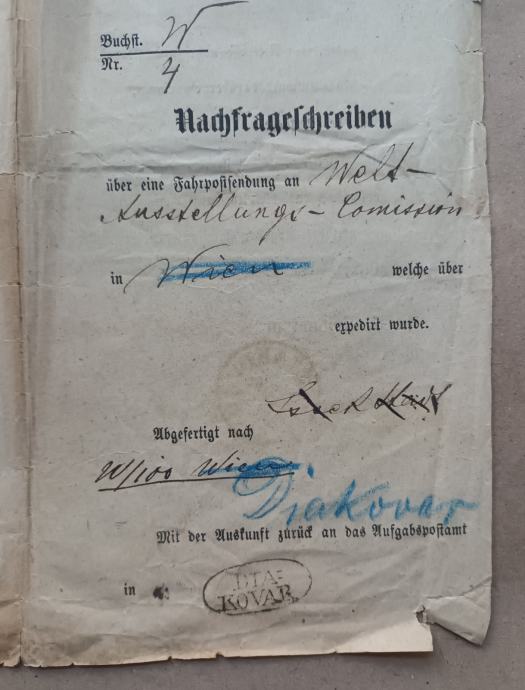 Buchst. W
Nr. 4
Nachfrageschreiben
über eine Fahrpostsendung an Welt-
Ausstellungs-Comission
in Wien welche über
expedirt wurde.
Abgefertigt nach
Wien
Diakovar
Mit der Auskunft zurück an das Aufgabspostamt
in
DIA-
KOVAR